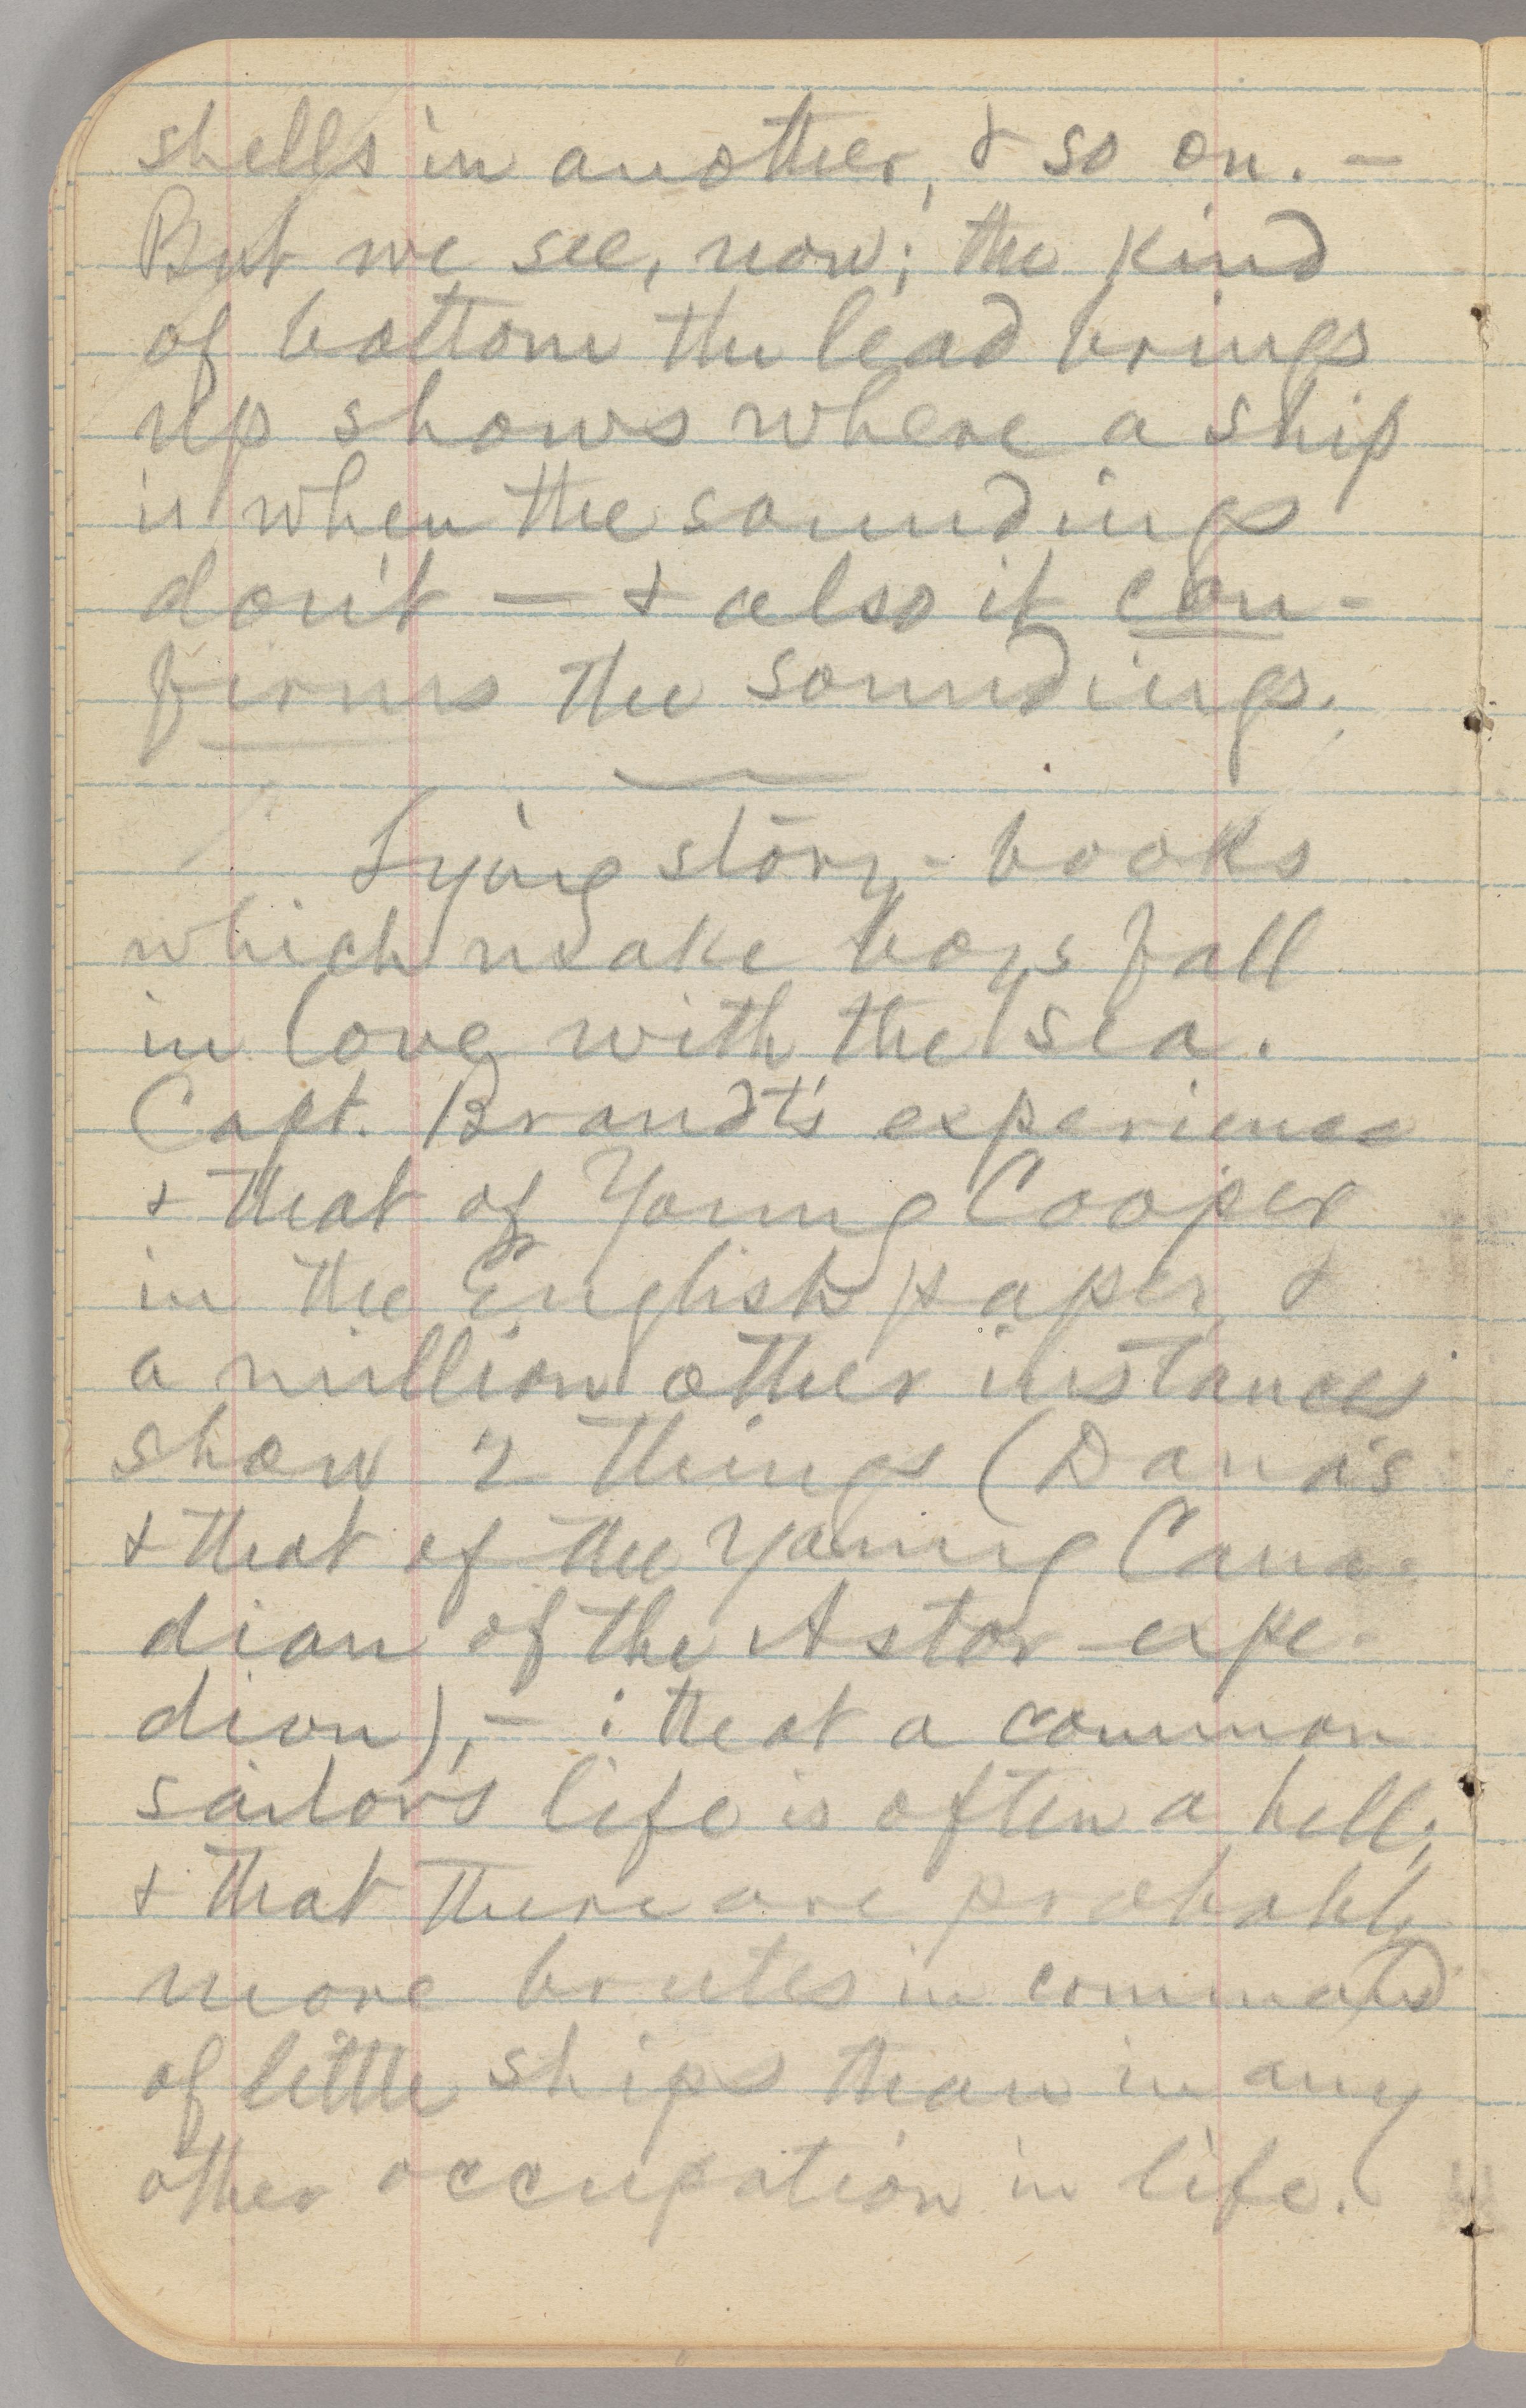 shells in another, & so on. —
But we see, now; the kind
of bottom the lead brings
up shows where a ship
is when the soundings
don't — & also it con-
firms the soundings.
Lying story-books
which make boys fall
in love with the sea.
Capt. Brandt's experience
& that of Young Cooper
in the English paper, &
a million other instances
show 2 things (Dana's
& that of the Young Cana-
dian of the Astor expe-
dion), — : that a common
sailor's life is often a hell;
& that there are probably
more brutes in command
of little ships than in any
other occupation in life.